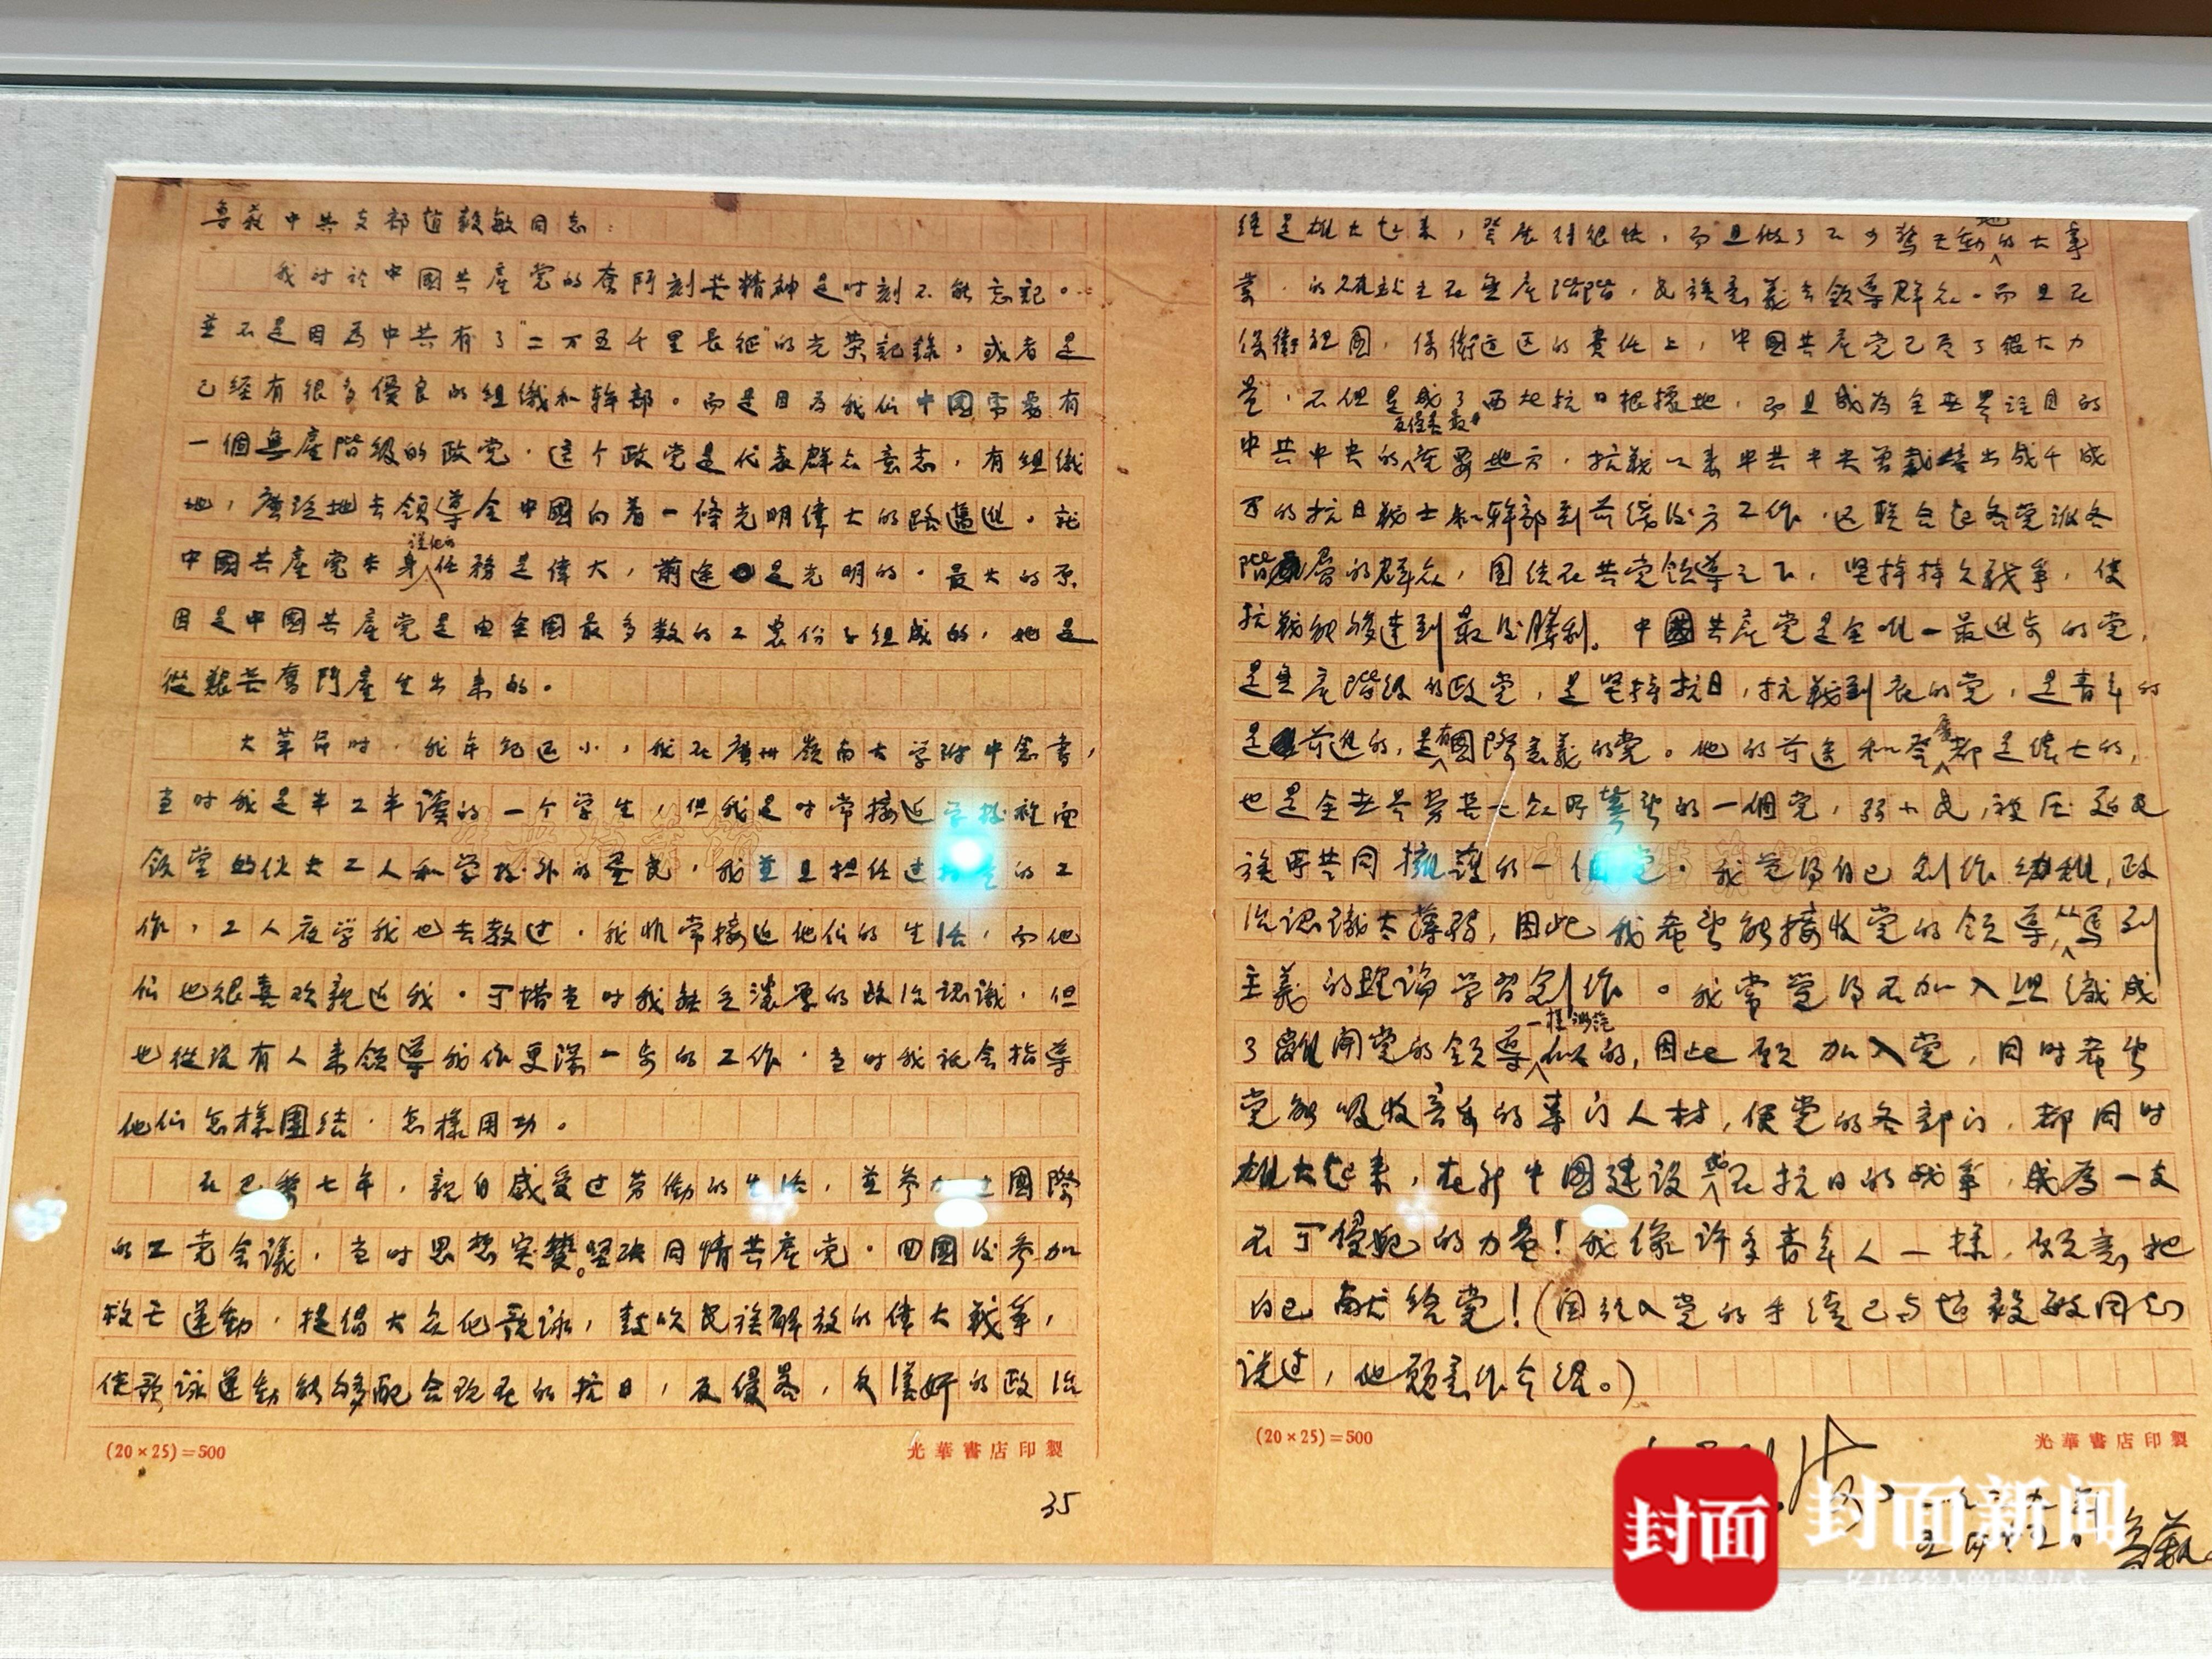 鲁艺中共支部赵毅敏同志：
我对於中國共產党的奮鬥刻苦精神是时刻不能忘記。
並不是因為中共有了“二万五千里長征”的光荣記錄，或者是
已經有很多優良的組織和幹部。而是因为我们中國需要有
一個無產階級的政党．这个政党是代表群众意志，有組織
地，廣泛地去領導全中國向着一條光明偉大的路邁進。就
中國共產党本身說他的任務是偉大，前途是光明的．最大的原
因是中國共產党是由全國最多数的工農份子組成的，她是
從艱苦奮鬥產生出来的。
大革命时，我年纪还小，我在廣州嶺南大学附中念書，
当时我是半工半读的一个学生，但我是时常接近学校裡面
飯堂的伙夫工人和学校外的蛋民，我並且担任过的工
作，工人夜学我也去教过．我非常接近他们的生活，而他
们也很喜欢親近我．可惜当时我缺乏濃厚的政治認識，但
也從没有人来領導我作更深一步的工作．当时我祇会指導
他们怎様團结．怎様用功。
在巴黎七年，親自感受过劳働的生活，並参加过國際
的工党会議，当时思想突變。坚决同情共產党．回國後参加
救亡運動，提倡大众化歌詠，鼓吹民族解放的偉大戰爭，
使歌詠運動能够配合现在的抗日，反侵畧，反漢奸的政治
(20×25)=500
光華書店印製
35
雄大起来，發展得很快，而且做了不少驚天動地的大事
業．的领導群众．而且在
保衛祖國，保衛边区的責任上，中國共產党已尽了很大力
量，不但是成了西北抗日根據地，而且成为全世界注目的
中共中央的反侵畧最重要地方，抗戰以来中共中央曾栽培出成千成
万的抗日戰士和幹部到前綫後方工作．还联合起各党派各
階層的群众，團结在共党領導之下，坚持持久戰爭，使
抗戰能够達到最後勝利。中國共產党是全唯一最進步的党，
是無產階級的政党，是坚持抗日，抗戰到底的党，是青年的
是前進的，是有國際意義的党。他的前途和發展都是偉大的，
也是全世界劳苦大众所的一個党，弱小民，被压迫民
族所共同擁護的一個党．我觉得自己創作幼稚，政
治認識太薄弱，因此我希望能接收党的領導，从馬列
主義的理論学習創作。我常觉得不加入組織成
了離開党的領導一樣似的，因此願加入党，同时希望
党能吸收音乐的專门人材，使党的各部门，都同时
雄大起来，在新中國建设和在抗日的戰爭，成为一支
不可侵犯的力量！我像許多青年人一様，願意把
自己献給党！（関於入党的手續已与赵毅敏同志
谈过，他願意作介绍。）
(20×25)=500
光華書店印製
一九三九年
五月
鲁艺
封面
封面新闻